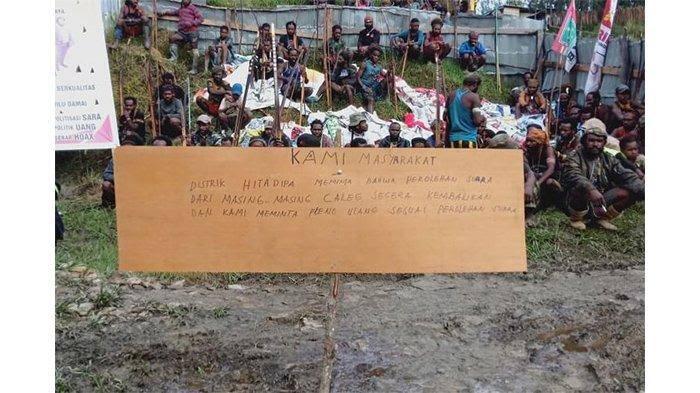 BERKUALITAS
ILU DAMAI
POLITISASI SARA
POLITIK UANG
HOAX
KAMI MASYARAKAT
DISTRIK HITADIPA MEMINTA BAHWA PEROLEHAN SUARA
DARI MASING-MASING CALEG SEGERA KEMBALIKAN
DAN KAMI MEMINTA PLENO ULANG SESUAI PEROLEHAN SUARA